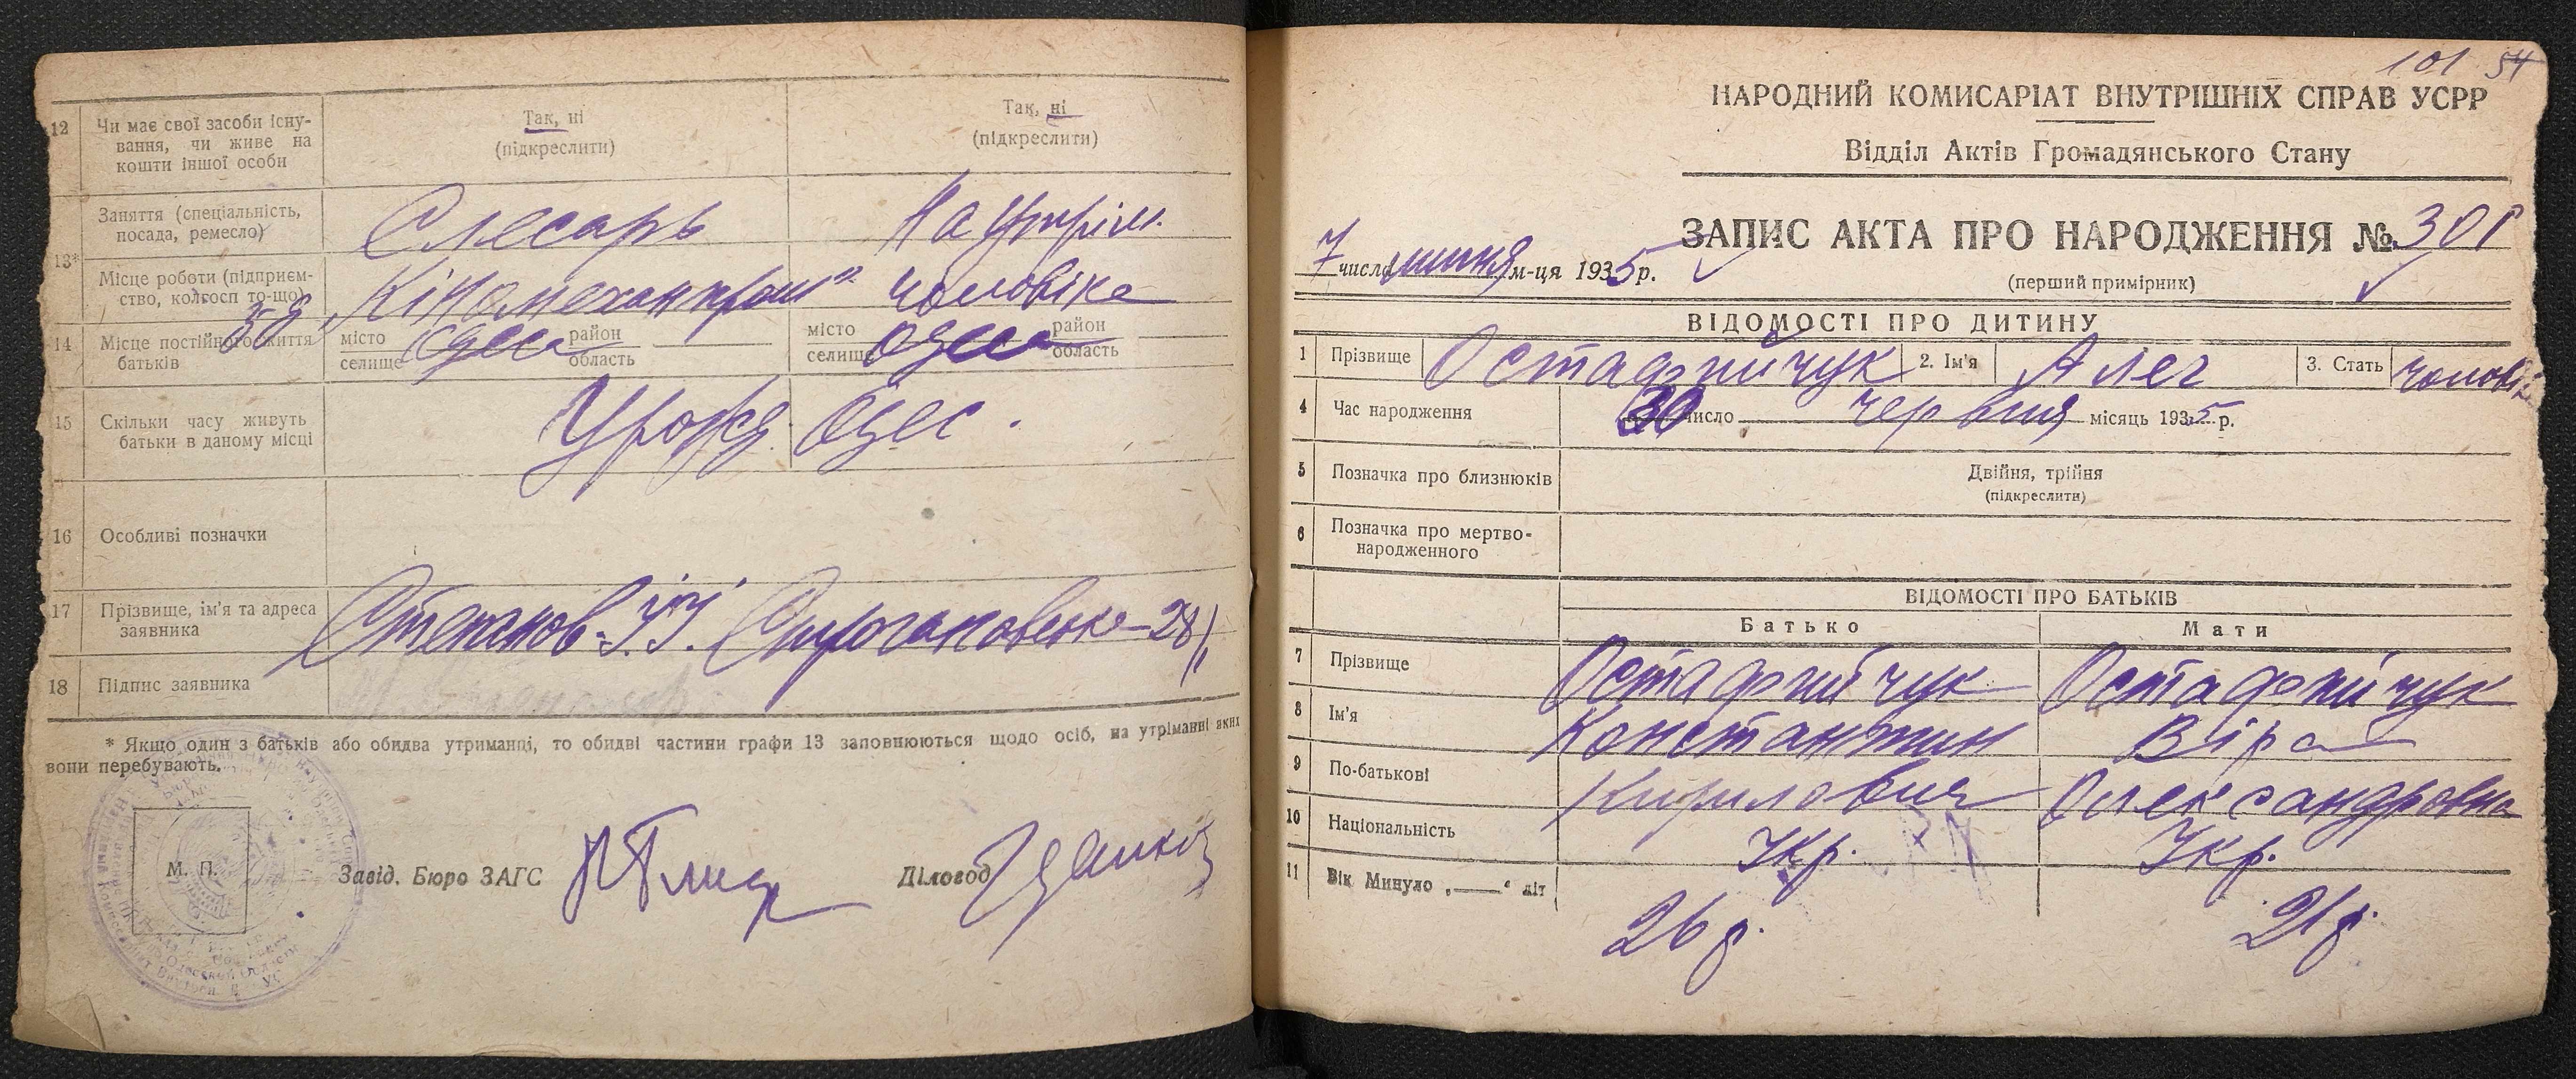 12 Чи має свої засоби існу-
вання, чи живе на
кошти іншої особи
Так, ні
(підкреслити)
Так, ні
(підкреслити)
13* Заняття (спеціальність,
посада, ремесло)
Слесарь
На утрім.
Місце роботи (підприєм-
ство, колгосп то-що)
чоловіка
14 Місце постійного життя
батьків
місто
селище
Одеса
район
область
місто
селище
Одеса
район
область
15 Скільки часу живуть
батьки в даному місці
Урожд. Одес.
16 Особливі позначки
17 Прізвище, ім'я та адреса
заявника
Степанов
28
18 Підпис заявника
* Якщо один з батьків або обидва утриманці, то обидві частини графи 13 заповнюються щодо осіб, на утриманні яких
вони перебувають.
М. П.
Завід. Бюро ЗАГС
Діловод
101 54
НАРОДНИЙ КОМИСАРІАТ ВНУТРІШНІХ СПРАВ УСРР
Відділ Актів Громадянського Стану
ЗАПИС АКТА ПРО НАРОДЖЕННЯ № 301
7 числа липня м-ця 1935 р.
(перший примірник)
ВІДОМОСТІ ПРО ДИТИНУ
1 Прізвище Остафійчук 2. Ім'я Алег 3. Стать чолові
4 Час народження 30 число червня місяць 1935 р.
5 Позначка про близнюків
Двійня, трійня
(підкреслити)
6 Позначка про мертво-
народженного
ВІДОМОСТІ ПРО БАТЬКІВ
Батько Мати
7 Прізвище Остафійчук Остафійчук
8 Ім'я Константин Віра
9 По-батькові Кирилович Олександровна
10 Національність Укр. Укр.
11 Вік Минуло „——“ літ 26 р. 21 р.